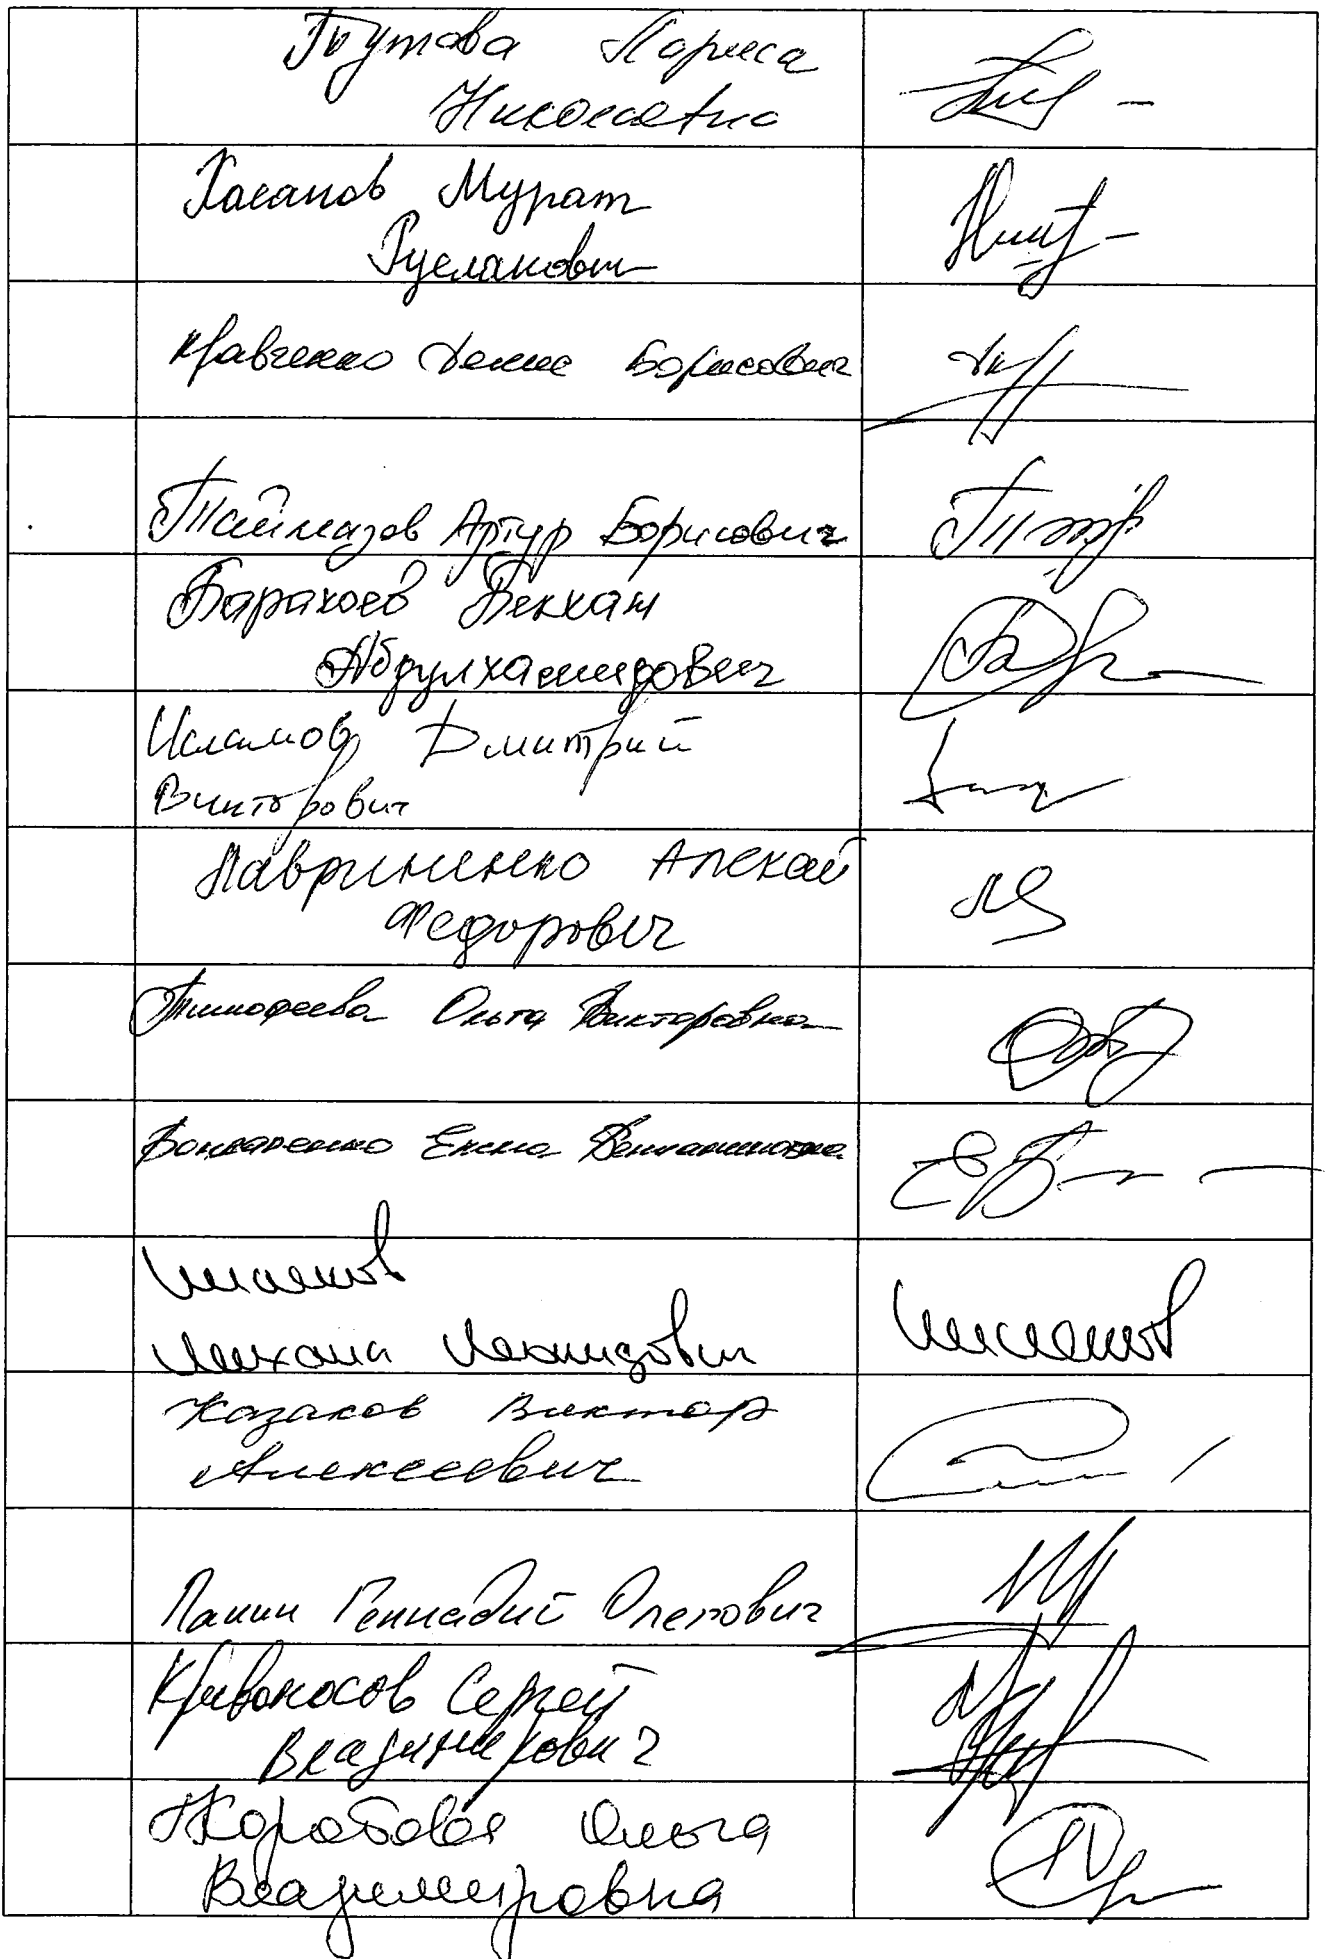 Тутова Лариса
Николаевна
Хасанов Мурат
Русланович
Кравченко Денис Борисович
Таймазов Артур Борисович
Барахоев Бекхан
Абдулхамидович
Исламов Дмитрий
Викторович
Лавриненко Алексей
Федорович
Тимофеева Ольга Викторовна
Бондаренко Елена Вениаминовна
Шмаков
Михаил Леонидович
Казаков Виктор
Алексеевич
Панин Геннадий Олегович
Кривоносов Сергей
Владимирович
Коробова Ольга
Владимировна